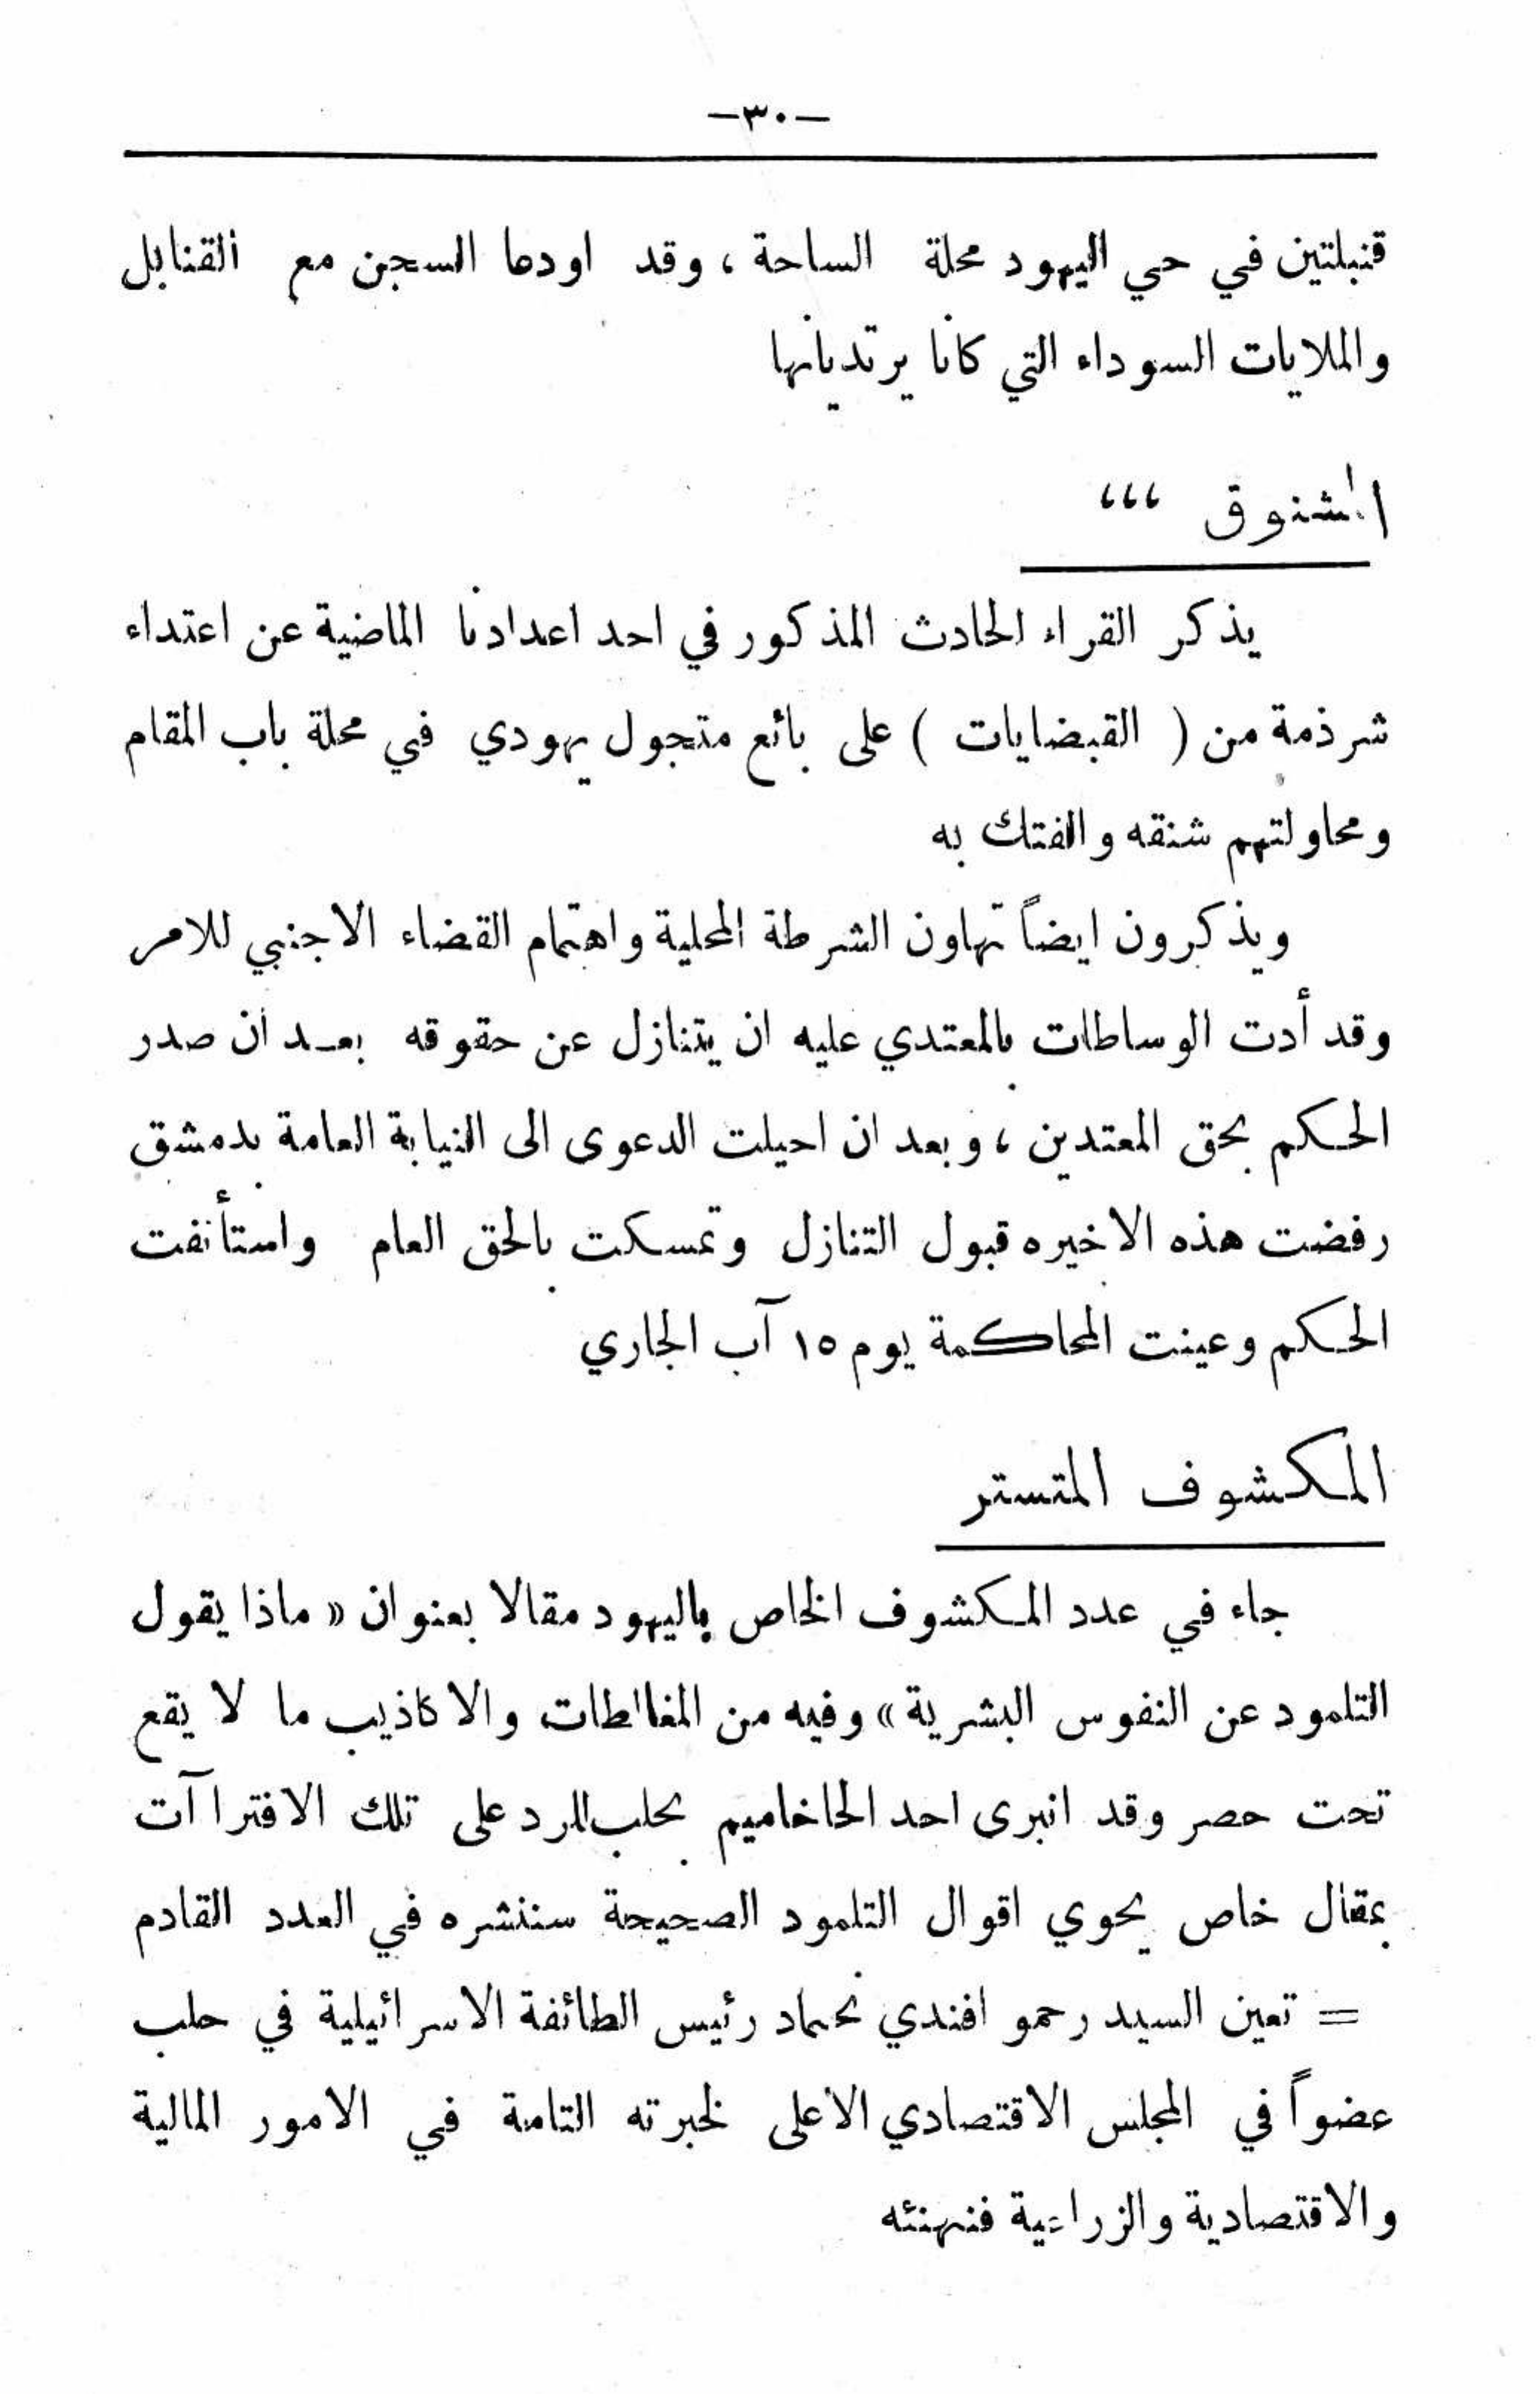 —٣٠—
قنبلتين في حي اليهود محلة الساحة ، وقد اودعا السجن مع القنابل
والملايات السوداء التي كانا يرتديانها
المشنوق ،،،
يذكر القراء الحادث المذكور في احد اعدادنا الماضية عن اعتداء
شرذمة من ( القبضايات ) على بائع متجول يهودي في محلة باب المقام
ومحاولتهم شنقه والفتك به
ويذكرون ايضاً تهاون الشرطة المحلية واهتمام القضاء الاجنبي للامر
وقد أدت الوساطات بالمعتدي عليه ان يتنازل عن حقوقه بعد ان صدر
الحكم بحق المعتدين ، وبعد ان احيلت الدعوى الى النيابة العامة بدمشق
رفضت هذه الاخيره قبول التنازل وتمسكت بالحق العام واستأنفت
الحكم وعينت المحاكمة يوم ١٥ آب الجاري
المكشوف المتستر
جاء في عدد المكشوف الخاص باليهود مقالا بعنوان « ماذا يقول
التلمود عن النفوس البشرية » وفيه من المغالطات والاكاذيب ما لا يقع
تحت حصر وقد انبرى احد الحاخاميم بحلب للرد على تلك الافتراآت
بمقال خاص يحوي اقوال التلمود الصحيحة سننشره في العدد القادم
= تعين السيد رحمو افندي نحماد رئيس الطائفة الاسرائيلية في حلب
عضواً في المجلس الاقتصادي الاعلى لخبرته التامة في الامور المالية
والاقتصادية والزراعية فنهنئه